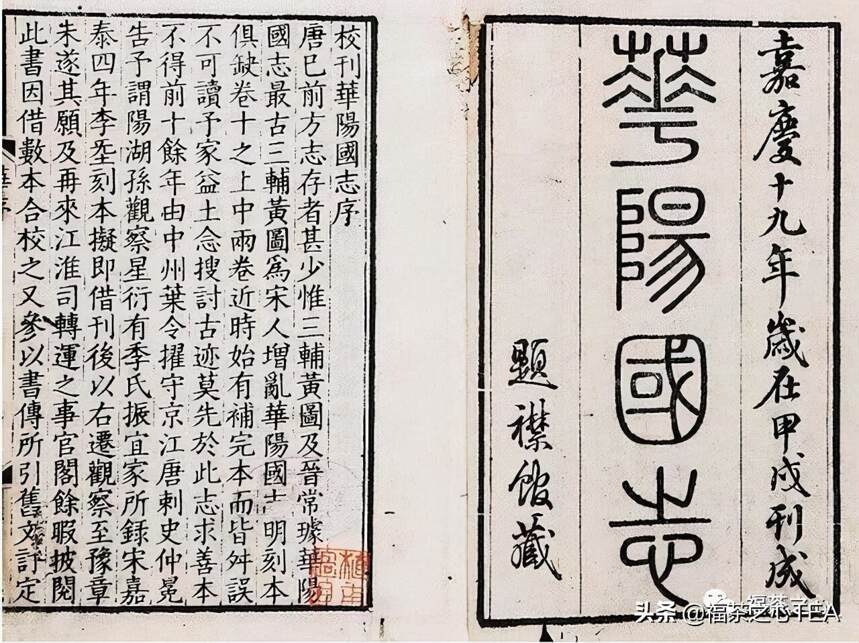 嘉慶十九年歲在甲戌刊成
華陽國志
題襟館藏
校刊華陽國志序
唐巳前方志存者甚少惟三輔黃圖及晉常璩華陽
國志最古三輔黃圖爲宋人增亂華陽國志明刻本
俱缺卷十之上中兩卷近時始有補完本而皆舛誤
不可讀予家益土念搜討古迹莫先於此志求善本
不得前十餘年由中州葉令擢守京江唐刺史仲冕
告予謂陽湖孫觀察星衍有季氏振宜家所錄宋嘉
泰四年李㙄刻本擬即借刊後以右遷觀察至豫章
朱遂其願及再來江淮司轉運之事官閣餘暇披閱
此書因借數本合校之又參以書傳所引舊文訂定
頭条 @福茶之心TEA